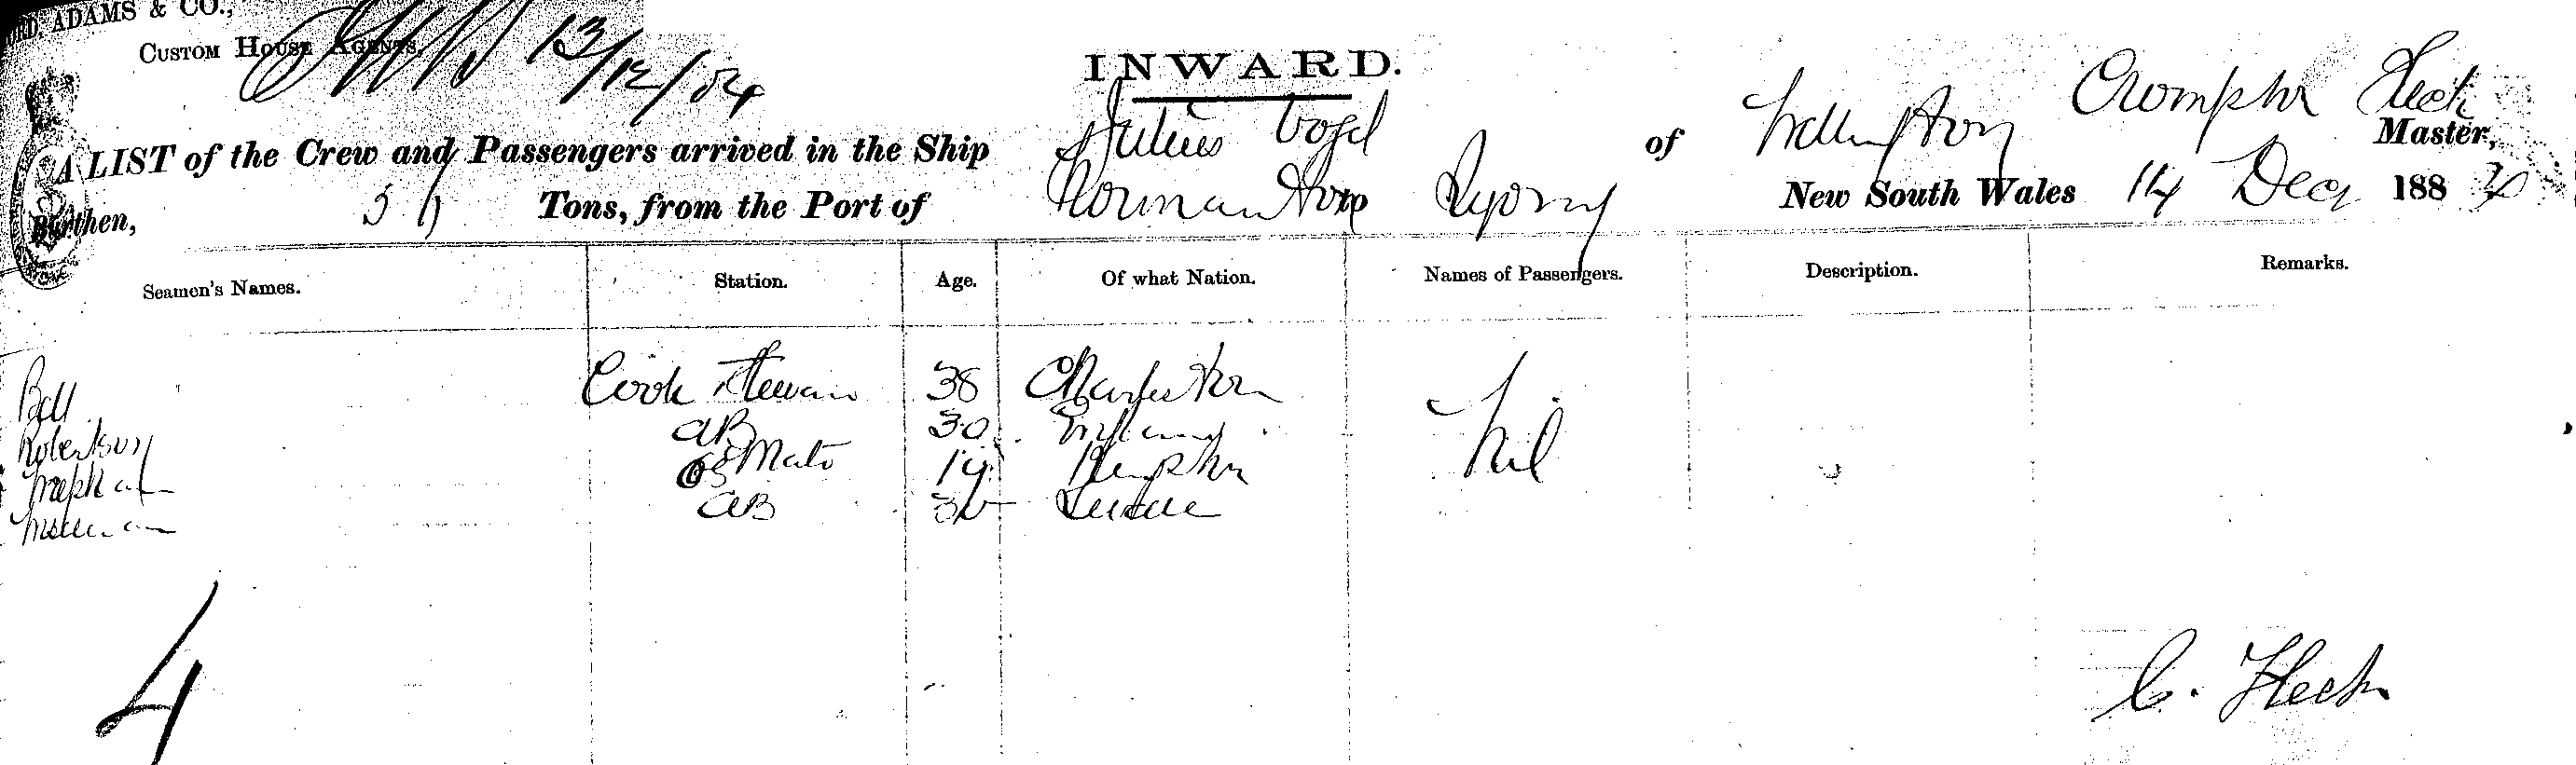 ADAMS & CO.,
CUSTOM HOUSE AGENTS, 13/12/84
INWARD.
A LIST of the Crew and Passengers arrived in the Ship Julius Vogel of Wellington Crompton Fleck Master,
Burthen, 59 Tons, from the Port of New South Wales 14 Decr 1884
Seamen's Names. Station. Age. Of what Nation. Names of Passengers. Description. Remarks.
Bell Cook & Steward 38 Charleston Nil
Robertson AB 30 England
OS Mate 19
AB Sweden
4
C. Fleck